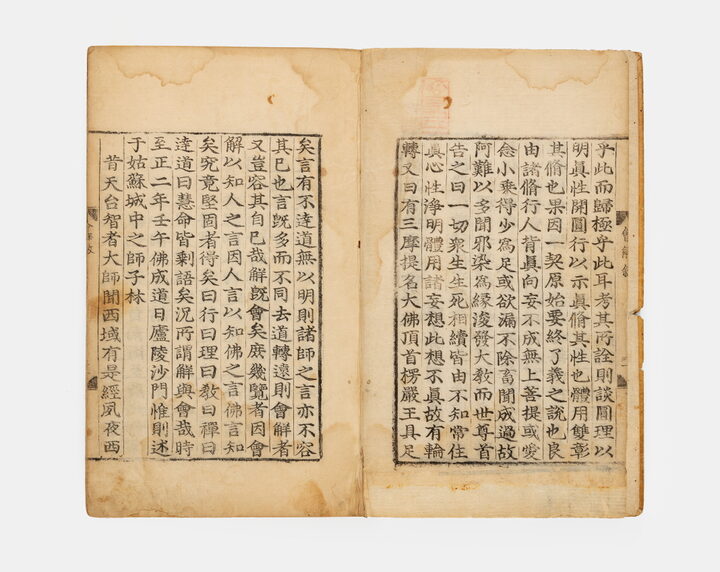 乎此而歸極乎此耳考其所詮則談圓理以
明眞性開圓行以示眞脩其性也體用雙彰
其脩也果因一契原始要終了義之說也良
由諸脩行人背眞向妄不成無上菩提或愛
念小乘得少爲足或欲漏不除畜聞成過故
阿難以多聞邪染爲緣浚發大教而世尊首
告之曰一切衆生生死相續皆由不知常住
眞心性淨明體用諸妄想此想不眞故有輪
轉又曰有三摩提名大佛頂首楞嚴王具足
矣言有不達道無以明則諸師之言亦不容
其已也言旣多而不同去道轉遠則會解者
又豈容其自已哉解旣會矣庶幾覽者因會
解以知人之言因人言以知佛之言佛言知
矣究竟堅固者得矣曰行曰理曰教曰禪曰
達道曰慧命皆剩語矣況所謂解與會哉時
至正二年壬午佛成道日廬陵沙門惟則述
于姑蘇城中之師子林
昔天台智者大師聞西域有是經夙夜西